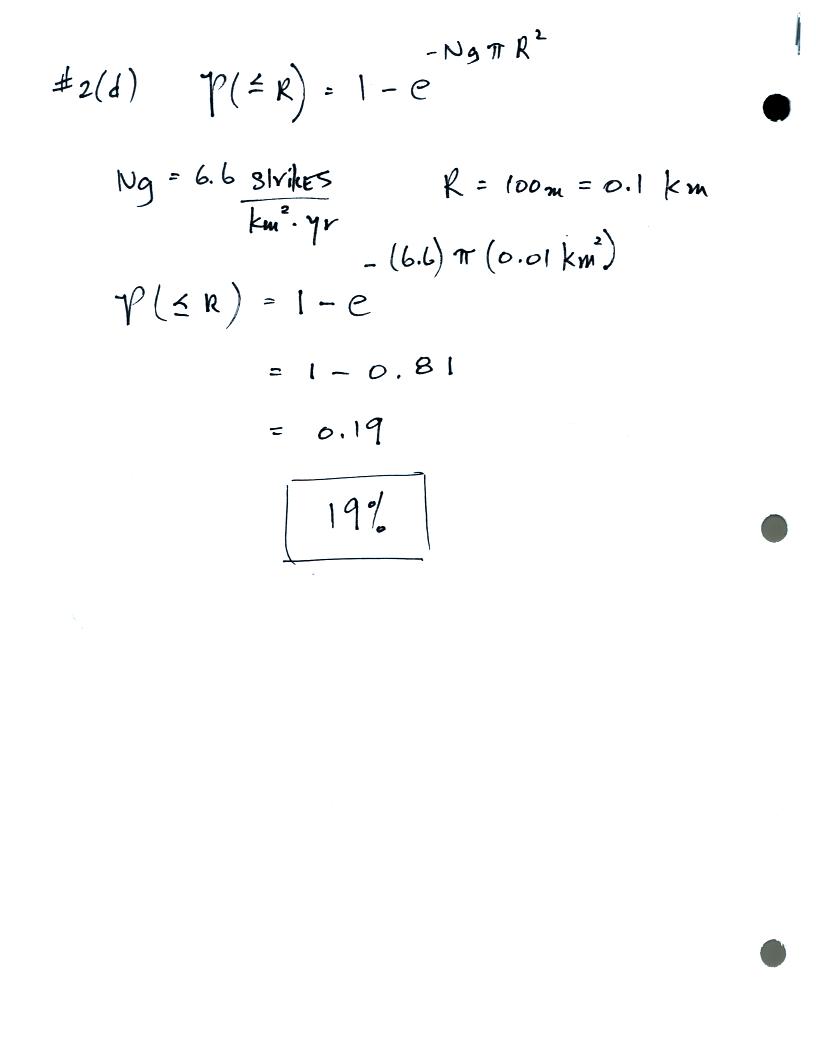 #2(d) P(≤ R) = 1 - e^{-Ng π R²}
Ng = 6.6 strikes / km² · yr    R = 100m = 0.1 km
P(≤ R) = 1 - e^{-(6.6) π (0.01 km²)}
= 1 - 0.81
= 0.19
19%